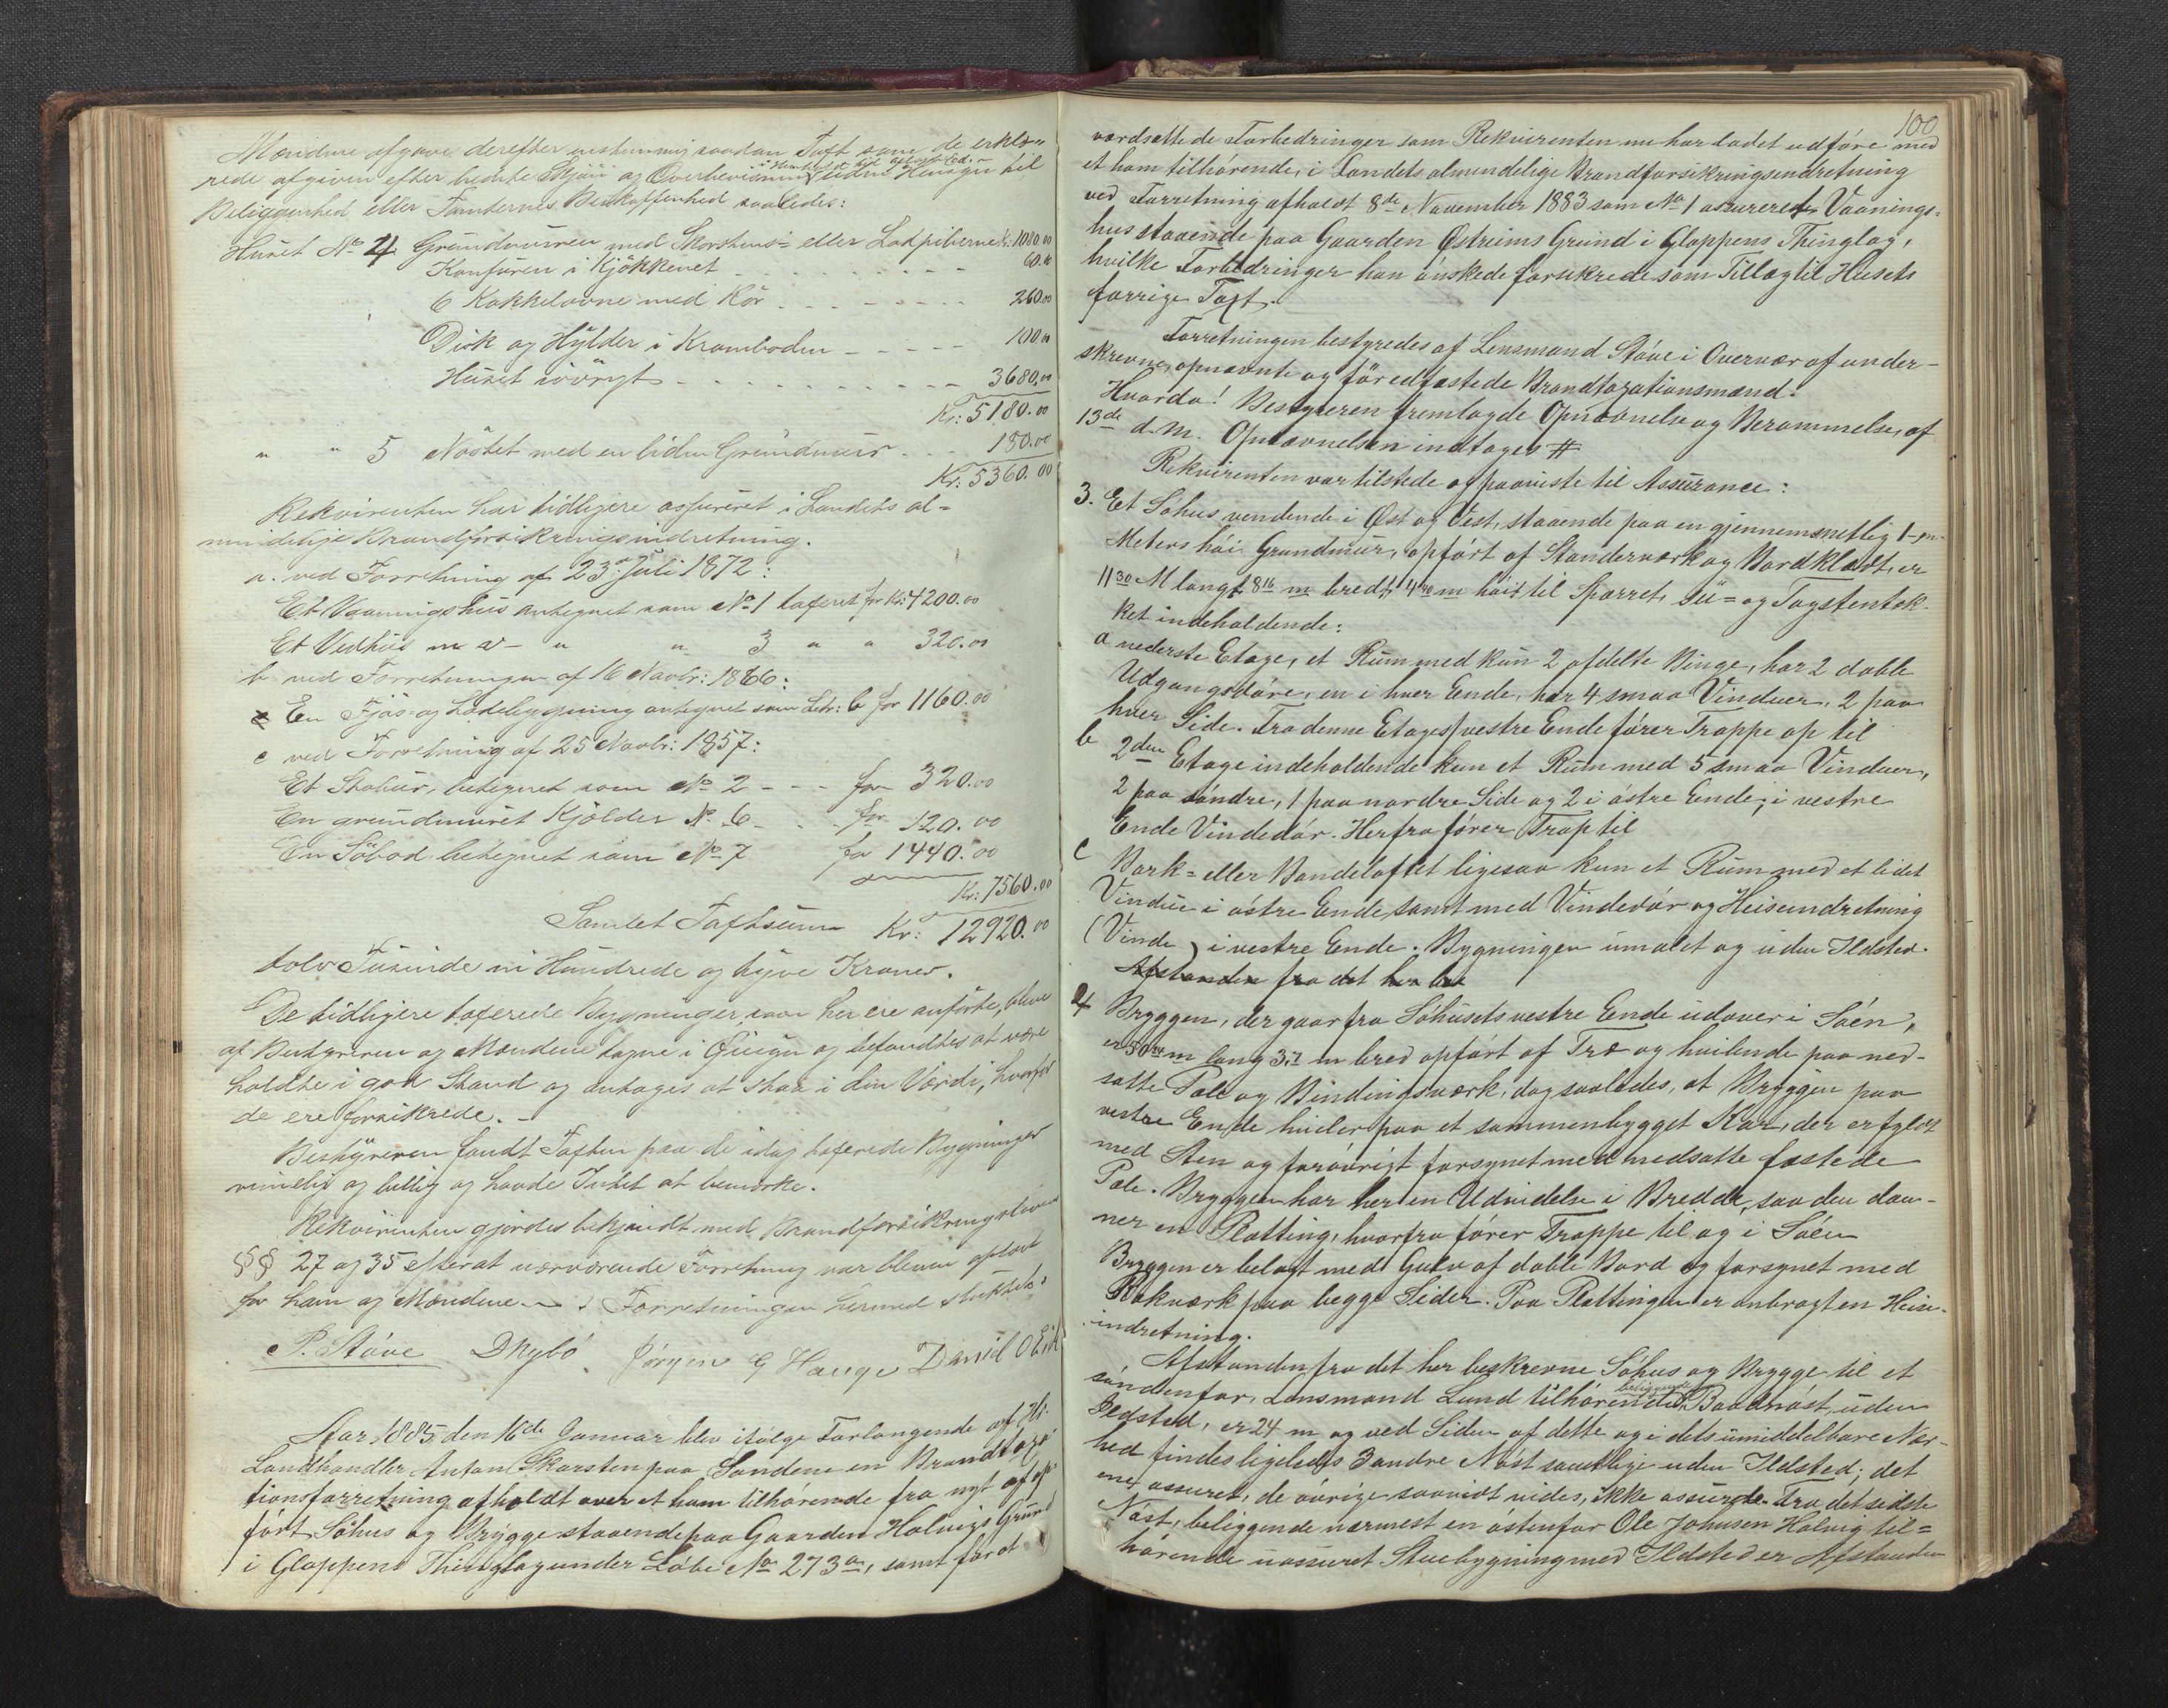 Mændene afgave derefter enstemmig saadan Taxt som de erklæ-
rede afgiven efter bedste Skjøn og Overbevisning i Henhold til uden Hensyn til
Beliggenhed eller Tomternes Beskaffenhed saaledes:
Huset No 4 Grundmuren med Skorstens- eller Ladpiberne Kr: 1080.00
Komfuren i Kjøkkenet - - - - 60.00
6 Kakkelovne med Rør - - - - 260.00
Disk og Hylder i Kramboden - - - - 100.00
Huset iøvrigt - - - - 3680.00
Kr: 5180.00
" " 5 Nøstet med en liden Grundmur - - 180.00
Kr: 5360.00
Rekvirenten har tidligere assureret i Landets al-
mindelige Brandforsikringsindretning.
a. ved Forretning af 23de Juli 1872:
Et Vaaningshus antegnet som No 1 taxeret for Kr: 4200.00
Et Vedhus m v - " " 3 " " 320.00
b ved Forretningen af 16 Novbr: 1866:
En Fjøs- og Ladebygning antegnet som Litr: b for 1160.00
c ved Forretning af 25 Novbr: 1857:
Et Stabur, betegnet som No 2 - - - for 320.00
En grundmuret Kjelder No 6 - - for 120.00
En Søbod betegnet som No 7 for 1440.00
Kr: 7560.00
Samlet Taxtsum Kr: 12920.00
tolv Tusinde ni Hundrede og tyve Kroner.
De tidligere taxerede Bygninger, som her ere anførte, bleve
af Bestyreren og Mændene tagne i Øiesyn og befandtes at være
holdte i god Stand og antages at staa i den Værdi, hvorfor
de ere forsikrede. -
Bestyreren fandt Taxten paa de idag taxerede Bygninger
rimelig og billig og havde Intet at bemærke.
Rekvirenten gjordes bekjendt med Brandforsikringsloven
§§ 27 og 35 efterat nærværende Forretning var bleven oplæst
for ham og Mændene. - Forretningen hermed sluttet.
P. Støve DMybø Jørgen G Hauge Daniel O Eid
Aar 1885 den 16de Januar blev ifølge Forlangende af Hr.
Landhandler Anton Skarsten paa Sandene en Brandtaxa-
tionsforretning afholdt over et ham tilhørende fra nyt af op-
ført Søhus og Brygge staaende paa Gaarden Holvigs Grund
i Gloppens Thinglag under Løbe No 273a, samt for at
100
værdsætte de Forbedringer som Rekvirenten nu har ladet udføre med
et ham tilhørende, i Landets almindelige Brandforsikringsindretning
ved Forretning afholdt 8de November 1883 som No 1 assureret Vaanings-
hus staaende paa Gaarden Østreims Grund i Gloppens Thinglag,
hvilke Forbedringer han ønskede forsikrede som Tillæg til Husets
forrige Taxt.
Forretningen bestyredes af Lensmand Støve i Overvær af under-
skrevne, opnævnte og før edfæstede Brandtaxationsmænd.
Hvorda! Bestyreren fremlagde Opnævnelse og Berammelse, af
13de d.M. Opnævnelsen indtages #
Rekvirenten var tilstede og paaviste til Assurance:
3. Et Søhus vendende i Øst og Vest, staaende paa en gjennemsnitlig 1-en-
Meters høi Grundmur, opført af Stenderværk og Bordklædt, er
11 30 M langt 8 16 m bredt, 4 40 m høit til Sparret, su- og Tagstentæk-
ket indeholdende:
a nederste Etage, et Rum med kun 2 afdelte Binge, har 2 doble
Udgangsdøre, en i hver Ende, har 4 smaa Vinduer, 2 paa
hver Side. Fra denne Etages vestre Ende fører Trappe op til
b 2den Etage indeholdende kun et Rum med 5 smaa Vinduer,
2 paa søndre, 1 paa nordre Side og 2 i østre Ende, i vestre
Ende Vindedør. Herfra fører Trap til
c Mørk- eller Bandeloftet ligesaa kun et Rum med et lidet
Vindue i østre Ende samt med Vindedør og Heiseindretning
(Vinde) i vestre Ende. Bygningen umalet og uden Ildsted.
Afstanden fra det her be
4 Bryggen, der gaar fra Søhusets vestre Ende udover i Søen,
er 50 m lang 3,7 m bred opført af Træ og hvilende paa ned-
satte Pæle og Bindingsværk, dog saaledes, at Bryggen paa
vestre Ende hviler paa et sammenbygget Kar, der er fyldt
med Sten og forøvrigt forsynet med nedsatte fæstede
Pæle. Bryggen har her en Udvidelse i Bredde, saa den dan-
ner en Platting, hvorfra fører Trappe til og i Søen
Bryggen er belagt med Gulv af doble Bord og forsynet med
Rækværk paa begge Sider. Paa Plattingen er anbragt en Heise-
indretning.
Afstanden fra det her beskrevne Søhus og Brygge til et
søndenfor, Lensmand Lund tilhørende beliggende Baadnøst, uden
Ildsted, er 24 m og ved Siden af dette og i dets umiddelbare Nær-
hed findes ligeledes 3 andre Nøst samtlige uden Ildsted; det
ene assuret, de øvrige saavidt vides, ikke assurede. Fra det sidste
Nøst, beliggende nærmest en østenfor Ole Johnsen Holvig til-
hørende uassuret Stuebygning med Ildsted er Afstanden